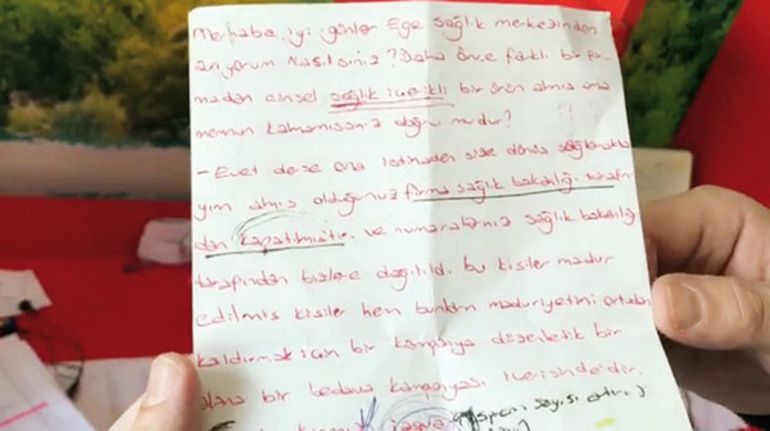 Merhaba iyi günler Ege sağlık merkezinden
arıyorum Nasılsınız? Daha önce farklı bir fir-
madan cinsel sağlık içerikli bir ürün almış ama
memnun kalmamıssınız doğru mudur?
- Evet derse ona istinaden size dönüş sağlamakta
yım almış olduğunuz firma sağlık bakanlığı tarafın
dan kapatılmıstır. ve numaralarınız sağlık bakanlığı
tarafından bizlere dağıtıldı. bu kisiler madur
edilmis kisiler hem bunların maduriyetini ortadan
kaldırmak için bir kampanya düzenledik bir
alana bir bedava kampanyası içerisindedir.
sayısı